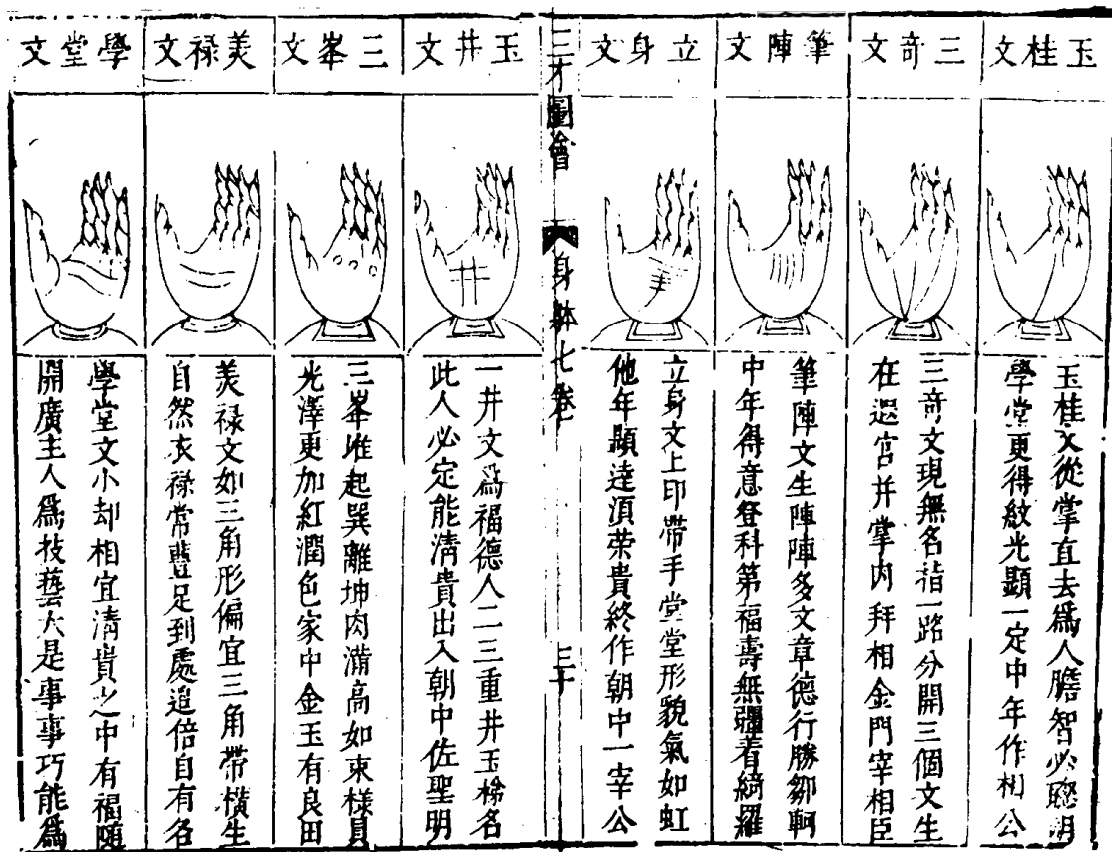 玉桂文
玉桂文從掌直去爲人膽智必聰明
學堂更得紋光顯一定中年作相公
三竒文
三竒文現無名指一路分開三個文生
在迟宫并掌内拜相金門宰相臣
筆陣文
筆陣文生陣陣多文章德行勝鄒軻
中年得意登科第福壽無疆着綺羅
立身文
立身文上印帶手堂堂形貌氣如虹
他年顯達湏荣貴終作朝中一宰公
三才圖會
身體七卷
三十
玉井文
一井文爲福德人二三重井玉梯名
此人必定能清貴出入朝中佐聖明
三峯文
三峯堆起巽離坤肉滿高如束様員
光澤更加紅潤色家中金玉有良田
美禄文
美禄文如三角形偏宜三角帶横生
自然衣祿常豊足到處追倍自有名
學堂文
學堂文小却相宜清貴之中有福隨
開廣主人爲技藝大是事事巧能爲